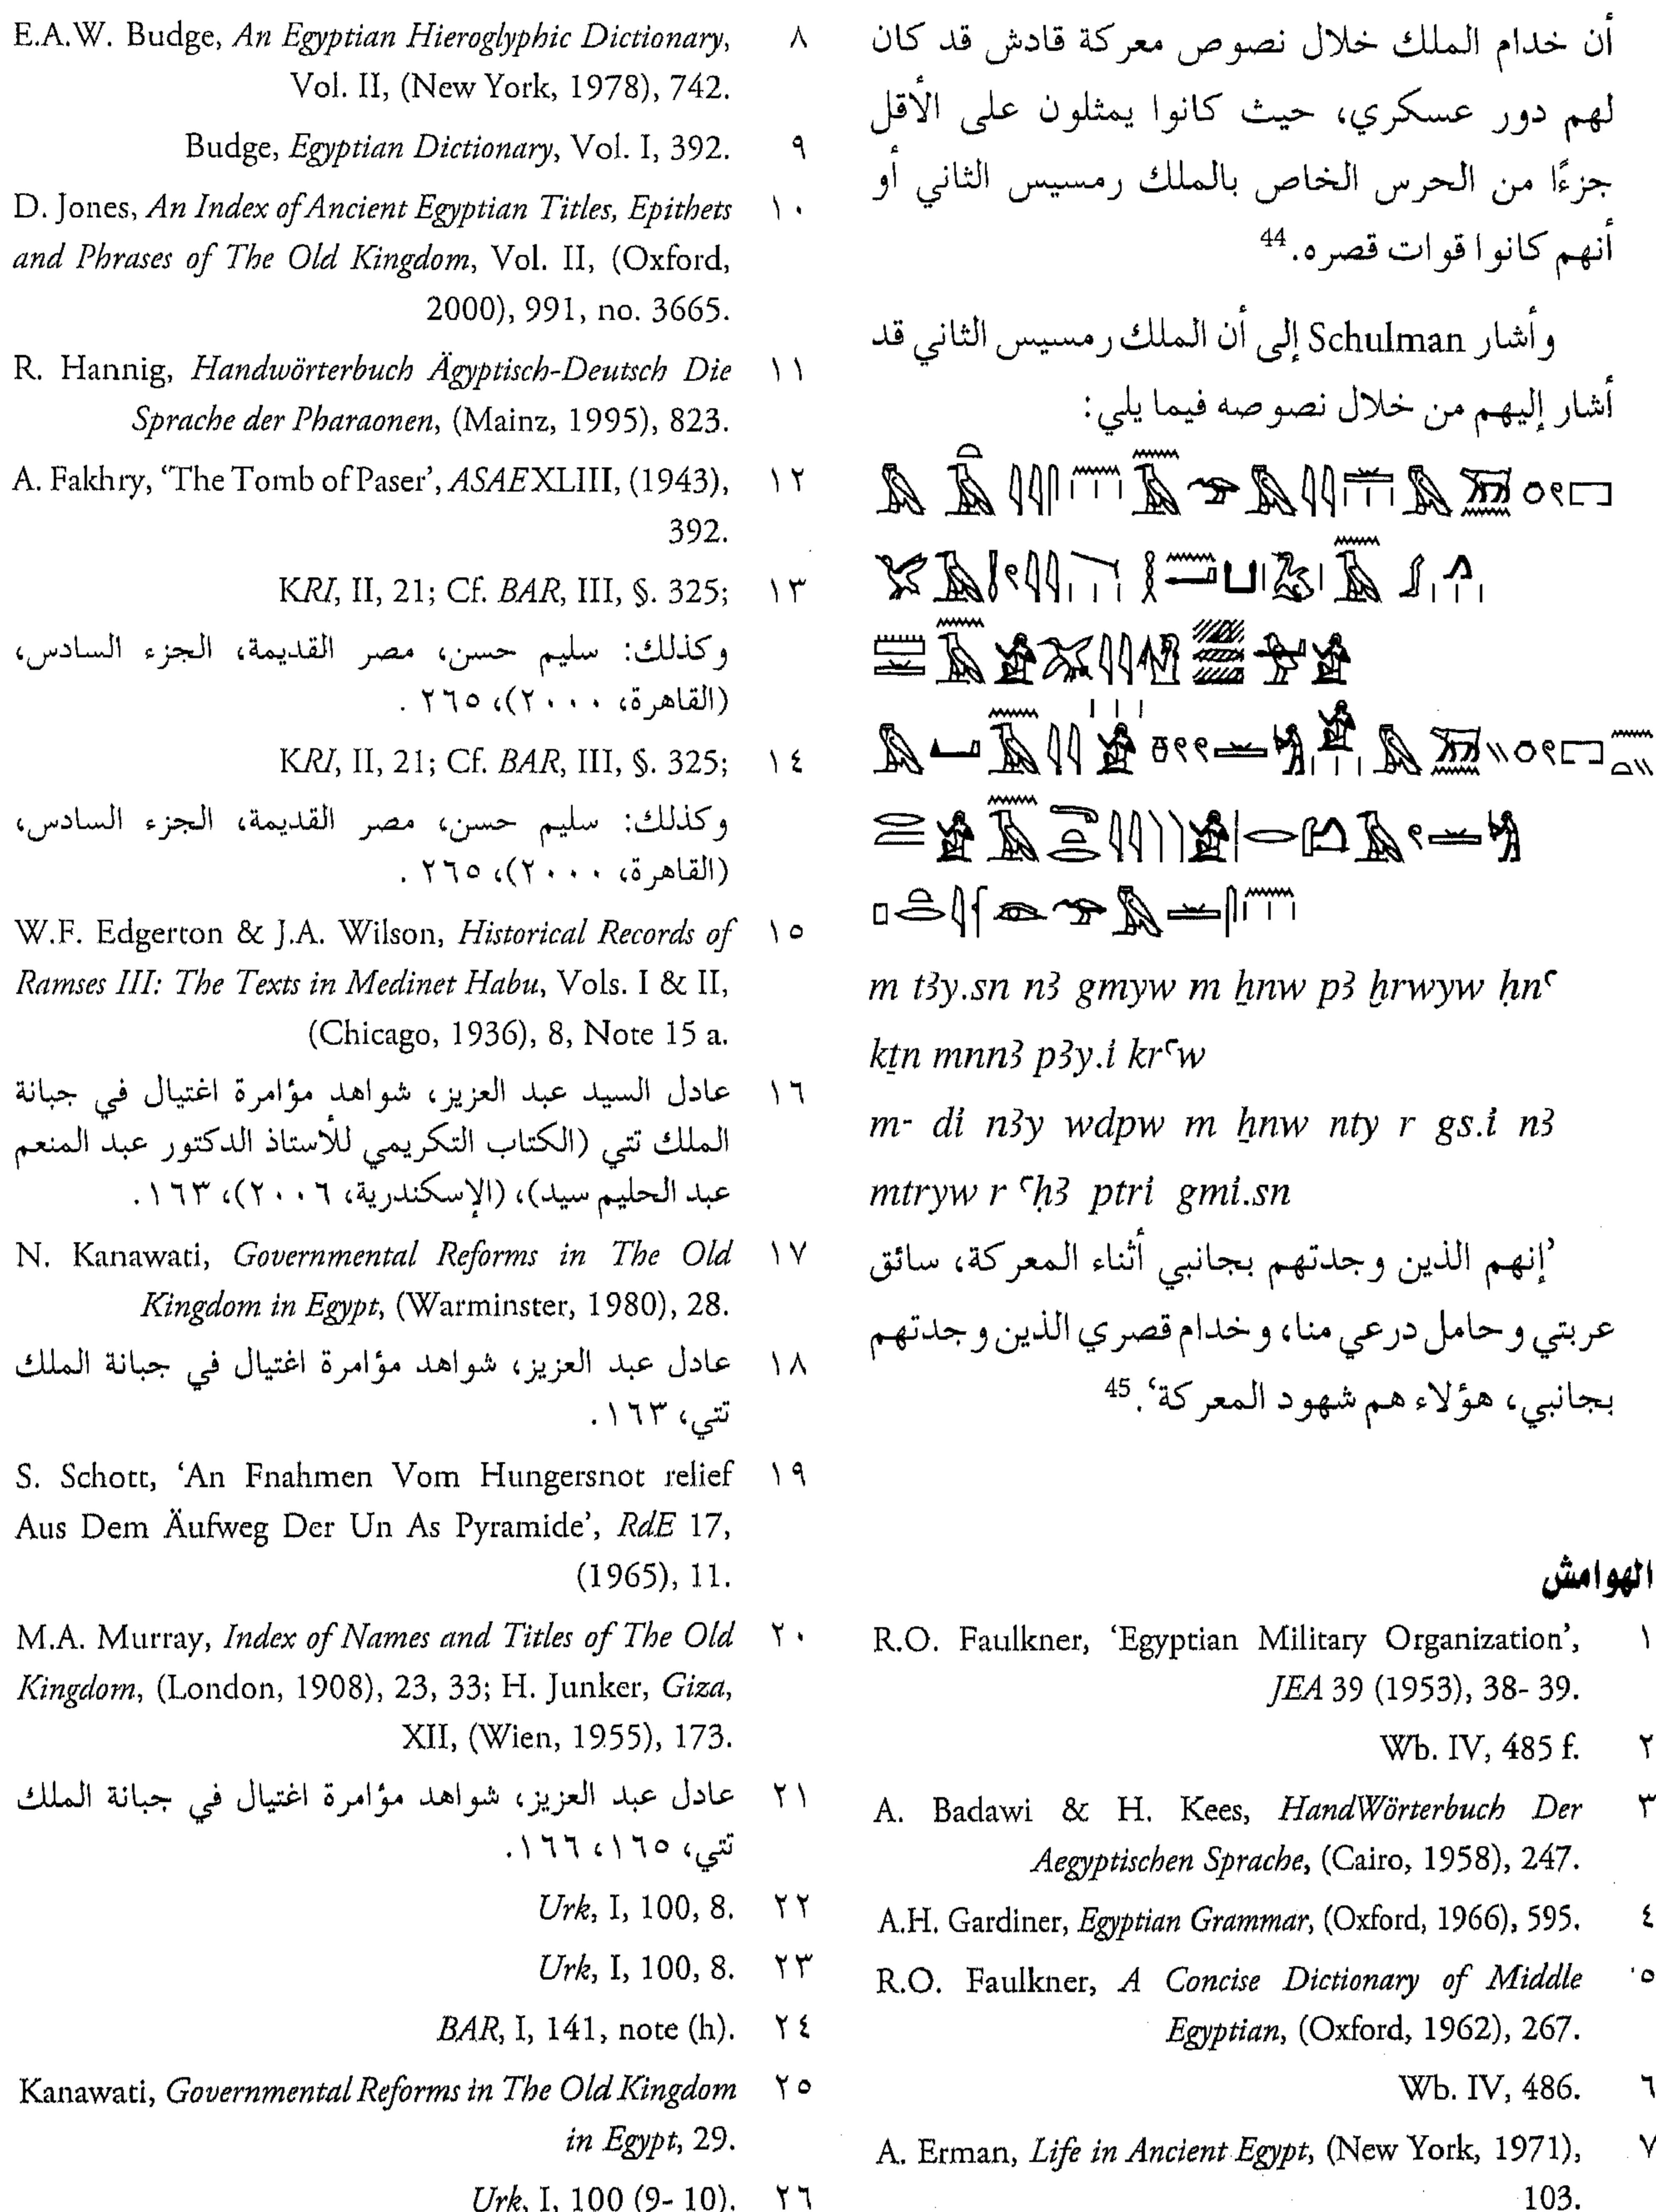 أن خدام الملك خلال نصوص معركة قادش قد كان
لهم دور عسكري، حيث كانوا يمثلون على الأقل
جزءًا من الحرس الخاص بالملك رمسيس الثاني أو
أنهم كانوا قوات قصره.44
وأشار Schulman إلى أن الملك رمسيس الثاني قد
أشار إليهم من خلال نصوصه فيما يلي:
m t3y.sn n3 gmyw m ẖnw p3 ḫrwyw ḥnꜥ
kṯn mnn3 p3y.i krꜥw
m- di n3y wdpw m ẖnw nty r gs.i n3
mtryw r ꜥḥ3 ptri gmi.sn
’إنهم الذين وجدتهم بجانبي أثناء المعركة، سائق
عربتي وحامل درعي منا، وخدام قصري الذين وجدتهم
بجانبي، هؤلاء هم شهود المعركة‘.45
الهوامش
١ R.O. Faulkner, ‘Egyptian Military Organization’,
JEA 39 (1953), 38- 39.
٢ Wb. IV, 485 f.
٣ A. Badawi & H. Kees, HandWörterbuch Der
Aegyptischen Sprache, (Cairo, 1958), 247.
٤ A.H. Gardiner, Egyptian Grammar, (Oxford, 1966), 595.
٥ R.O. Faulkner, A Concise Dictionary of Middle
Egyptian, (Oxford, 1962), 267.
٦ Wb. IV, 486.
٧ A. Erman, Life in Ancient Egypt, (New York, 1971),
103.
٨ E.A.W. Budge, An Egyptian Hieroglyphic Dictionary,
Vol. II, (New York, 1978), 742.
٩ Budge, Egyptian Dictionary, Vol. I, 392.
١٠ D. Jones, An Index of Ancient Egyptian Titles, Epithets
and Phrases of The Old Kingdom, Vol. II, (Oxford,
2000), 991, no. 3665.
١١ R. Hannig, Handwörterbuch Ägyptisch-Deutsch Die
Sprache der Pharaonen, (Mainz, 1995), 823.
١٢ A. Fakhry, ‘The Tomb of Paser’, ASAE XLIII, (1943),
392.
١٣ KRI, II, 21; Cf. BAR, III, §. 325;
وكذلك: سليم حسن، مصر القديمة، الجزء السادس،
(القاهرة، ٢٠٠٠)، ٢٦٥.
١٤ KRI, II, 21; Cf. BAR, III, §. 325;
وكذلك: سليم حسن، مصر القديمة، الجزء السادس،
(القاهرة، ٢٠٠٠)، ٢٦٥.
١٥ W.F. Edgerton & J.A. Wilson, Historical Records of
Ramses III: The Texts in Medinet Habu, Vols. I & II,
(Chicago, 1936), 8, Note 15 a.
١٦ عادل السيد عبد العزيز، شواهد مؤامرة اغتيال في جبانة
الملك تتي (الكتاب التكريمي للأستاذ الدكتور عبد المنعم
عبد الحليم سيد)، (الإسكندرية، ٢٠٠٦)، ١٦٣.
١٧ N. Kanawati, Governmental Reforms in The Old
Kingdom in Egypt, (Warminster, 1980), 28.
١٨ عادل عبد العزيز، شواهد مؤامرة اغتيال في جبانة الملك
تتي، ١٦٣.
١٩ S. Schott, ‘An Fnahmen Vom Hungersnot relief
Aus Dem Äufweg Der Un As Pyramide’, RdE 17,
(1965), 11.
٢٠ M.A. Murray, Index of Names and Titles of The Old
Kingdom, (London, 1908), 23, 33; H. Junker, Giza,
XII, (Wien, 1955), 173.
٢١ عادل عبد العزيز، شواهد مؤامرة اغتيال في جبانة الملك
تتي، ١٦٥، ١٦٦.
٢٢ Urk, I, 100, 8.
٢٣ Urk, I, 100, 8.
٢٤ BAR, I, 141, note (h).
٢٥ Kanawati, Governmental Reforms in The Old Kingdom
in Egypt, 29.
٢٦ Urk, I, 100 (9- 10).